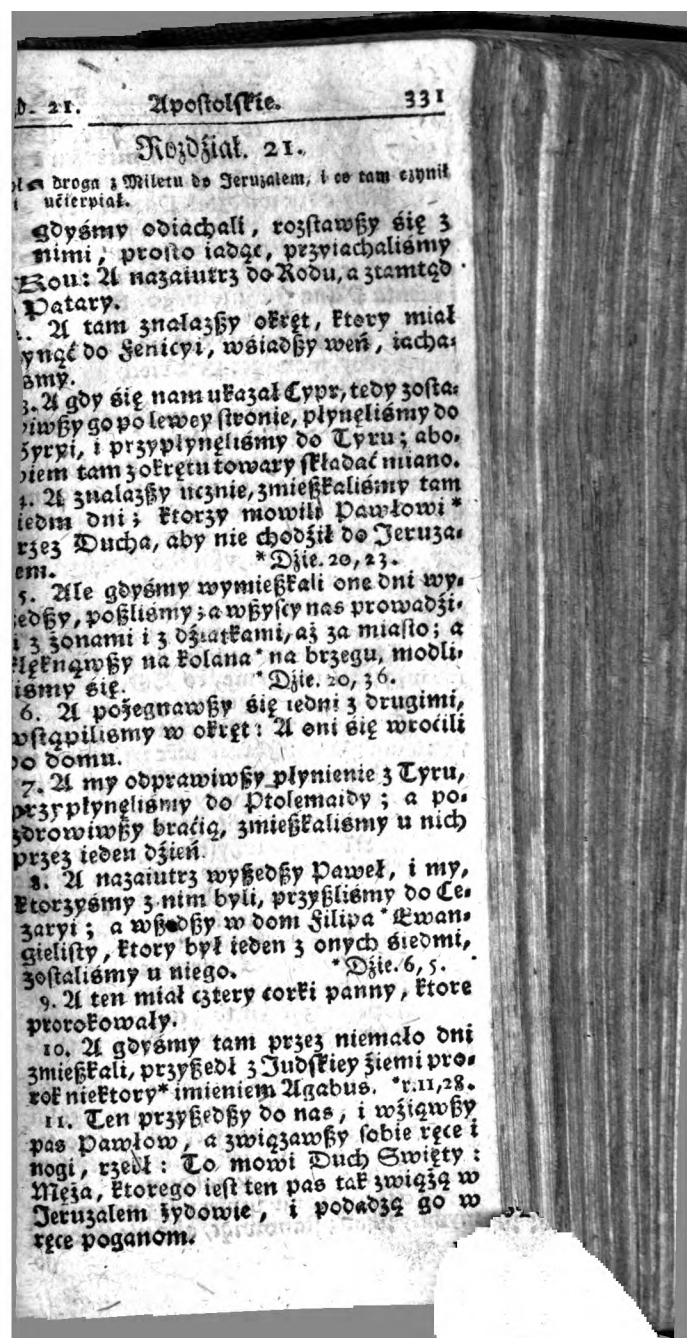 21. Apostolskie. 331
Rozdźiał. 21.
droga z Miletu do Jeruzalem, i co tam czynił
i ućierpiał.
gdyśmy odiachali, rozstawßy śię z
nimi, prosto iadąc, przyiachaliśmy
Kou: A nazaiutrz do Rodu, a ztamtąd
Patary.
A tam znalazßy okręt, ktory miał
ynąć do Fenicyi, wśiadßy weń, iacha-
śmy.
3. A gdy śię nam ukazał Cypr, tedy zosta-
iwßy go po lewey stronie, płynęliśmy do
Syryi, i przypłynęliśmy do Tyru; abo-
iem tam z okrętu towary składać miano.
4. A znalazßy ucznie, zmießkaliśmy tam
iedm dni; ktorzy mowili Pawłowi *
rzez Ducha, aby nie chodźił do Jeruza-
em. * Dźie. 20, 23.
5. Ale gdyśmy wymießkali one dni wy-
edßy, poßliśmy; a wßyscy nas prowadźi-
i z żonami i z dźiatkami, aż za miasto; a
klęknąwßy na kolana * na brzegu, modli-
iśmy śię. * Dźie. 20, 36.
6. A pożegnawßy śię iedni z drugimi,
wstąpiliśmy w okręt: A oni śię wroćili
do domu.
7. A my odprawiwßy płynienie z Tyru,
przypłynęliśmy do Ptolemaidy; a po-
zdrowiwßy braćią, zmießkaliśmy u nich
przez ieden dźień.
8. A nazaiutrz wyßedßy Paweł, i my,
ktorzyśmy z nim byli, przyßliśmy do Ce-
zaryi; a wßedßy w dom Filipa * Ewan-
gielisty, ktory był ieden z onych śiedmi,
zostaliśmy u niego. * Dźie. 6, 5.
9. A ten miał cztery corki panny, ktore
prorokowały.
10. A gdyśmy tam przez niemało dni
zmießkali, przyßedł z Judskiey źiemi pro-
rok niektory * imieniem Agabus. * r. 11, 28.
11. Ten przyßedßy do nas, i wźiąwßy
pas Pawłow, a związawßy sobie ręce i
nogi, rzekł: To mowi Duch Swięty:
Męża, ktorego iest ten pas tak zwiążą w
Jeruzalem żydowie, i podadzą go w
ręce poganom.